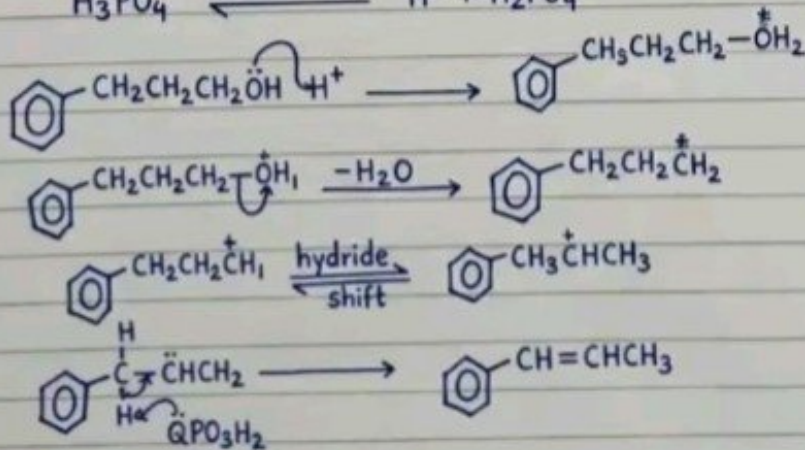 H₃PO₄ ⇌ H⁺ + H₂PO₄
CH₂CH₂CH₂ÖH H⁺ → CH₃CH₂CH₂–ÖH₂
CH₂CH₂CH₂–ÖH₁ –H₂O → CH₂CH₂ĊH₂
CH₂CH₂CH₁ hydride shift ⇌ CH₃CHCH₃
H
C–C̈HCH₂ → CH=CHCH₃
H Q̈PO₃H₂